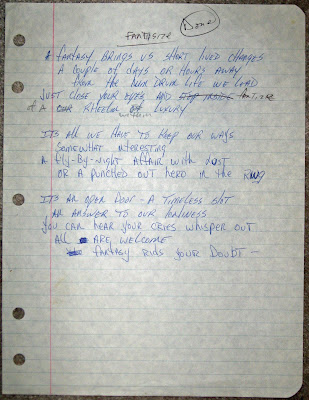 FANTASIZE
Done
A FANTASY BRINGS US SHORT LIVED CHANGES
A COUPLE OF DAYS OR HOURS AWAY
FROM THE HUM DRUM LIFE WE LEAD
JUST CLOSE YOUR EYES, AND STEP INSIDE FANTASIZE
OF A OR RHEEIM OF LUXURY
ITS ALL WE HAVE TO KEEP OUR WAYS
SOMEWHAT INTERESTING
A FLY-BY-NIGHT AFFAIR WITH LUST
OR A PUNCHED OUT HERO IN THE RING
ITS AN OPEN DOOR - A TIMELESS SLOT
AN ANSWER TO OUR LONLINESS
YOU CAN HEAR YOUR CRIES WHISPER OUT
ALL ARE WELCOME
FANTASY RIDS YOUR DOUBT